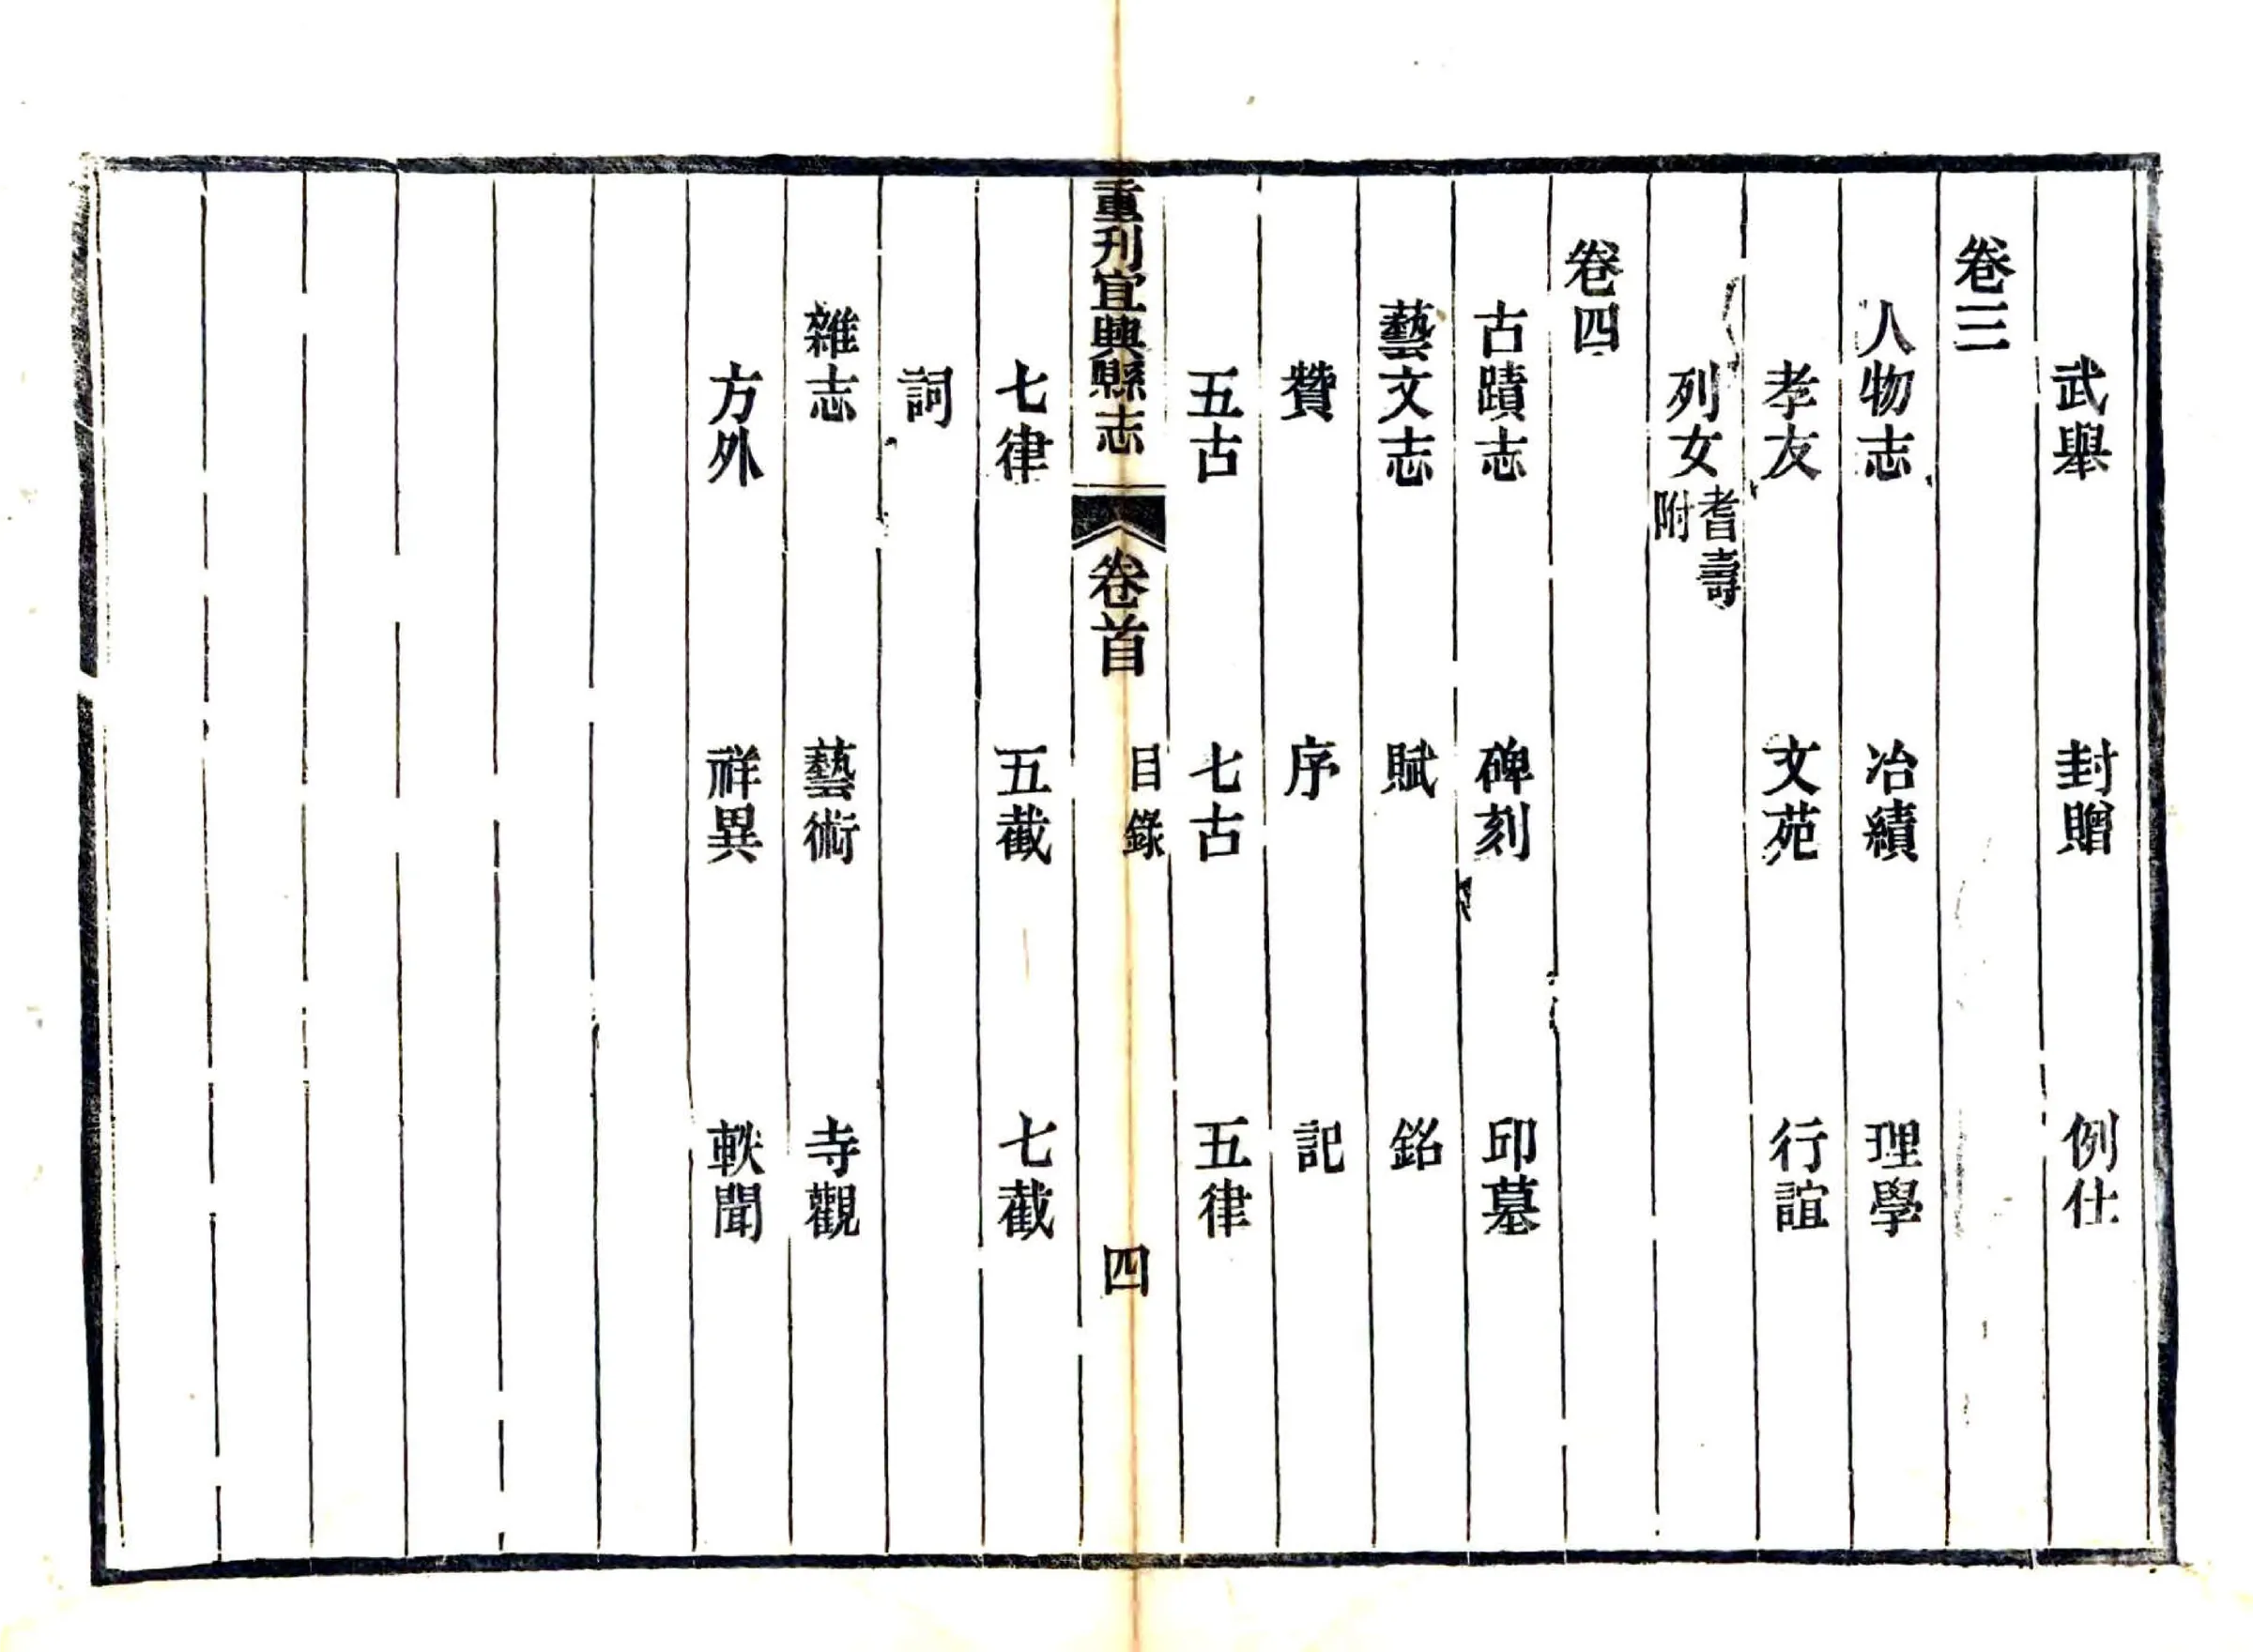 武舉 封贈 例仕
卷三
人物志 治績 理學
孝友 文苑 行誼
列女 耆壽附
卷四
古蹟志 碑刻 邱墓
藝文志 賦 銘
贊 序 記
五古 七古 五律
重刊宜興縣志 卷首 目錄 四
七律 五截 七截
詞
雜志 藝術 寺觀
方外 祥異 軼聞